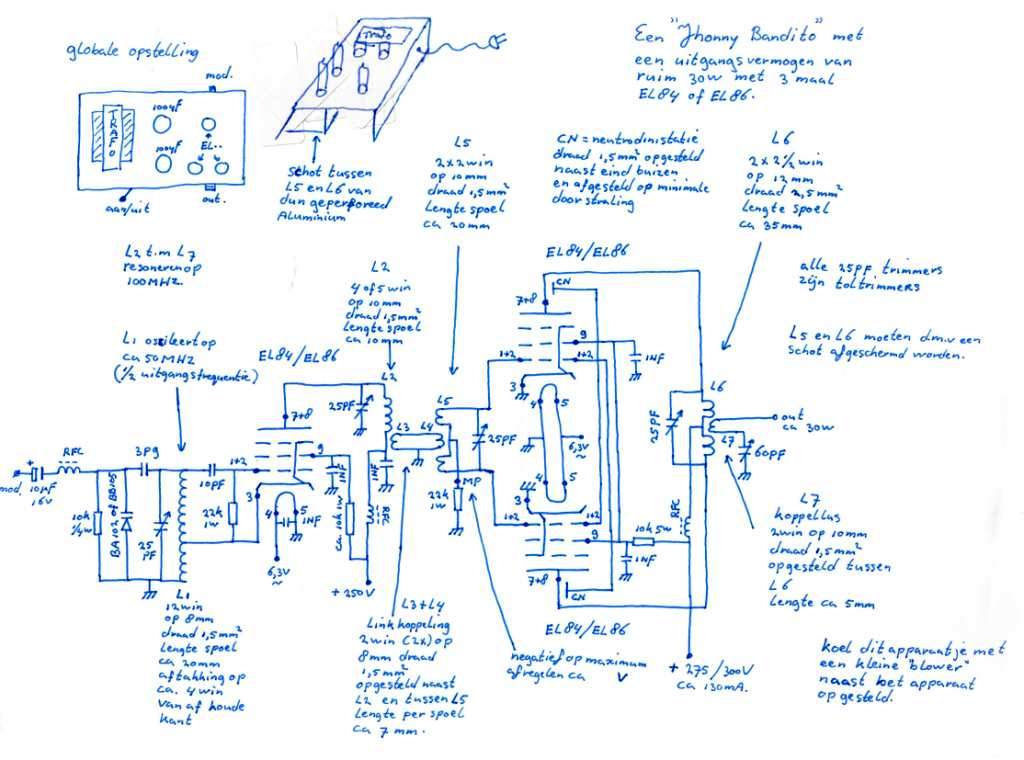 globale opstelling
mod.
TRAFO
100µF
100µF
EL..
aan/uit
out.
TRAFO
schot tussen
L5 en L6 van
dun geperforeed
Aluminium
Een "Jhonny Bandito" met
een uitgangsvermogen van
ruim 30w met 3 maal
EL84 of EL86.
L5
2x2win
op 10mm
draad 1,5mm²
Lengte spoel
ca 20mm
CN = neutrodinistatie
draad 1,5mm² opgesteld
naast eind buizen
en afgesteld op minimale
doorstraling
L6
2 x 2 1/2 win
op 12mm
draad 2,5mm²
Lengte spoel
ca 35mm
L2 t.m L7
resoneren op
100MHZ.
L2
4 of 5 win
op 10mm
draad 1,5mm²
Lengte spoel
ca 10mm
alle 25PF trimmers
zijn toltrimmers
L5 en L6 moeten d.m.v een
schot afgeschermd worden.
L1 ossileert op
ca 50MHZ
(1/2 uitgangsfrequentie)
EL84/EL86
EL84/EL86
7+8
CN
9
1+2
1+2
3
1NF
4
5
6,3V
~
4
5
3
1+2
1+2
9
7+8
CN
10k 5w
1NF
EL84/EL86
RFC
mod.
+
10µF
16V
10k
1/4w
BA102 of BB105
3P9
25
PF
L1
10PF
22k
1w
1+2
7+8
9
3
4
5
1NF
6,3V
~
ca 10k 1w
1NF
25PF
L2
1NF
RFC
+ 250V
L3
L4
L5
25PF
MP
22k
1w
L6
25PF
L7
60PF
out
ca 30w
RFC
+ 275/300V
ca 130mA.
12win
op 8mm
draad 1,5mm²
Lengte spoel
ca 20mm
aftakking op
ca. 4win
van af koude
kant
L3+L4
Link koppeling
2win (2x) op
8mm draad
1,5mm²
opgesteld naast
L2 en tussen L5
Lengte per spoel
ca 7mm.
negatief op maximum
afregelen ca V
L7
koppellus
2win op 10mm
draad 1,5mm²
opgesteld tussen
L6
Lengte ca 5mm
koel dit apparaatje met
een kleine "blower"
naast het apparaat
opgesteld.